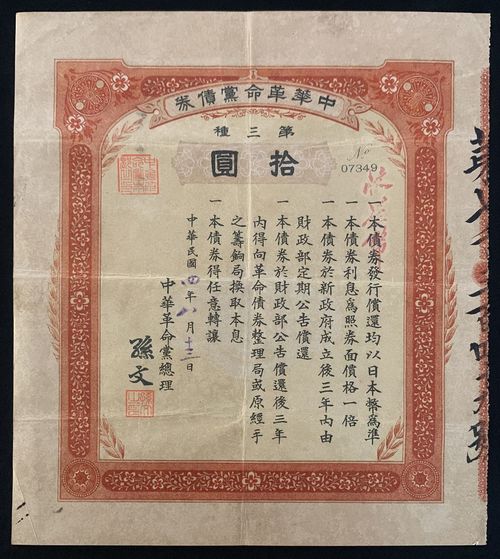 中華革命黨債券
第三種
拾圓
No
07349
一本債券發行償還均以日本幣為準
一本債券利息為照券面價格一倍
一本債券於新政府成立後三年內由
財政部定期公告償還
一本債券於財政部公告償還後三年
內得向革命債券整理局或原經手
之籌餉局換取本息
一本債券得任意轉讓
中華民國四年八月十三日
中華革命黨總理
孫文